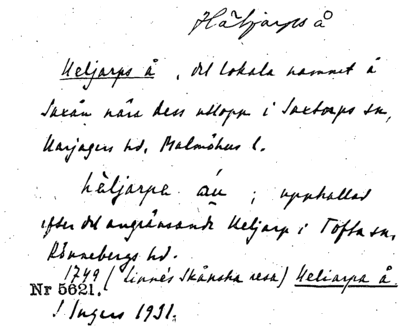 Häljarps å
Heljarps å, det lokala namnet å
Saxån nära dess utlopp i Saxtorps sn,
Harjagers hd. Malmöhus l.
häljarpa ån; uppkallad
efter det angränsande Heljarp i Tofta sn,
Rönnebergs hd.
1749 (Linnés Skånska resa) Heliarpa å.
Nr 5621.
Ingers 1931.